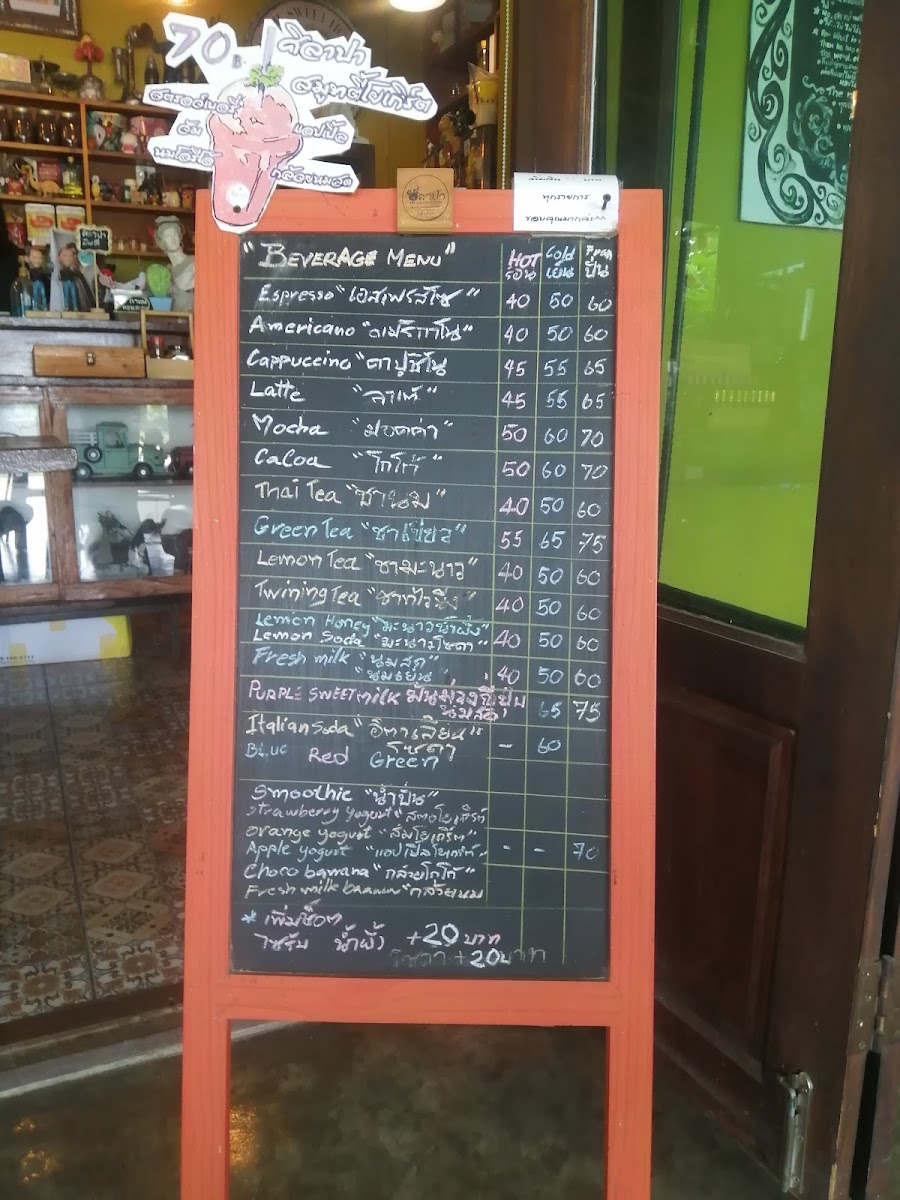 70.-
ศิลาปา
สมูทตี้โยเกิร์ต
สตรอว์เบอร์รี่
ส้ม
แอปเปิ้ล
กล้วยนมสด
ทุกรายการ
ขอบคุณมากค่ะ^^
"BEVERAGE MENU" HOT ร้อน Cold เย็น Fresh ปั่น
Espresso "เอสเพรสโซ" 40 50 60
Americano "อเมริกาโน" 40 50 60
Cappuccino "คาปูชิโน 45 55 65
Latte "ลาเท่" 45 55 65
Mocha "มอคค่า" 50 60 70
Caloa "โกโก้" 50 60 70
Thai Tea "ชานม" 40 50 60
Green Tea "ชาเขียว" 55 65 75
Lemon Tea "ชามะนาว" 40 50 60
Twining Tea "ชาทไวนิ่ง" 40 50 60
Lemon Honey "มะนาวน้ำผึ้ง"
Lemon Soda "มะนาวโซดา" 40 50 60
Fresh milk "นมสด"
"นมเย็น" 40 50 60
PURPLE SWEET milk มันม่วงญี่ปุ่น
นมสด 65 75
Italian Soda "อิตาเลี่ยน" - 60
โซดา
Blue Red Green
Smoothie "น้ำปั่น"
Strawberry Yogust "สตอโยเกิร์ท
orange yogust "ส้มโยเกิร์ต"
Apple yogust "แอปเปิลโยเกิร์ท" - - 70
Choco banana "กล้วยโกโก้"
Fresh milk banana "กล้วยนม
* เพิ่มช็อต
ไซรัป น้ำผึ้ง +20 บาท
+20บาท